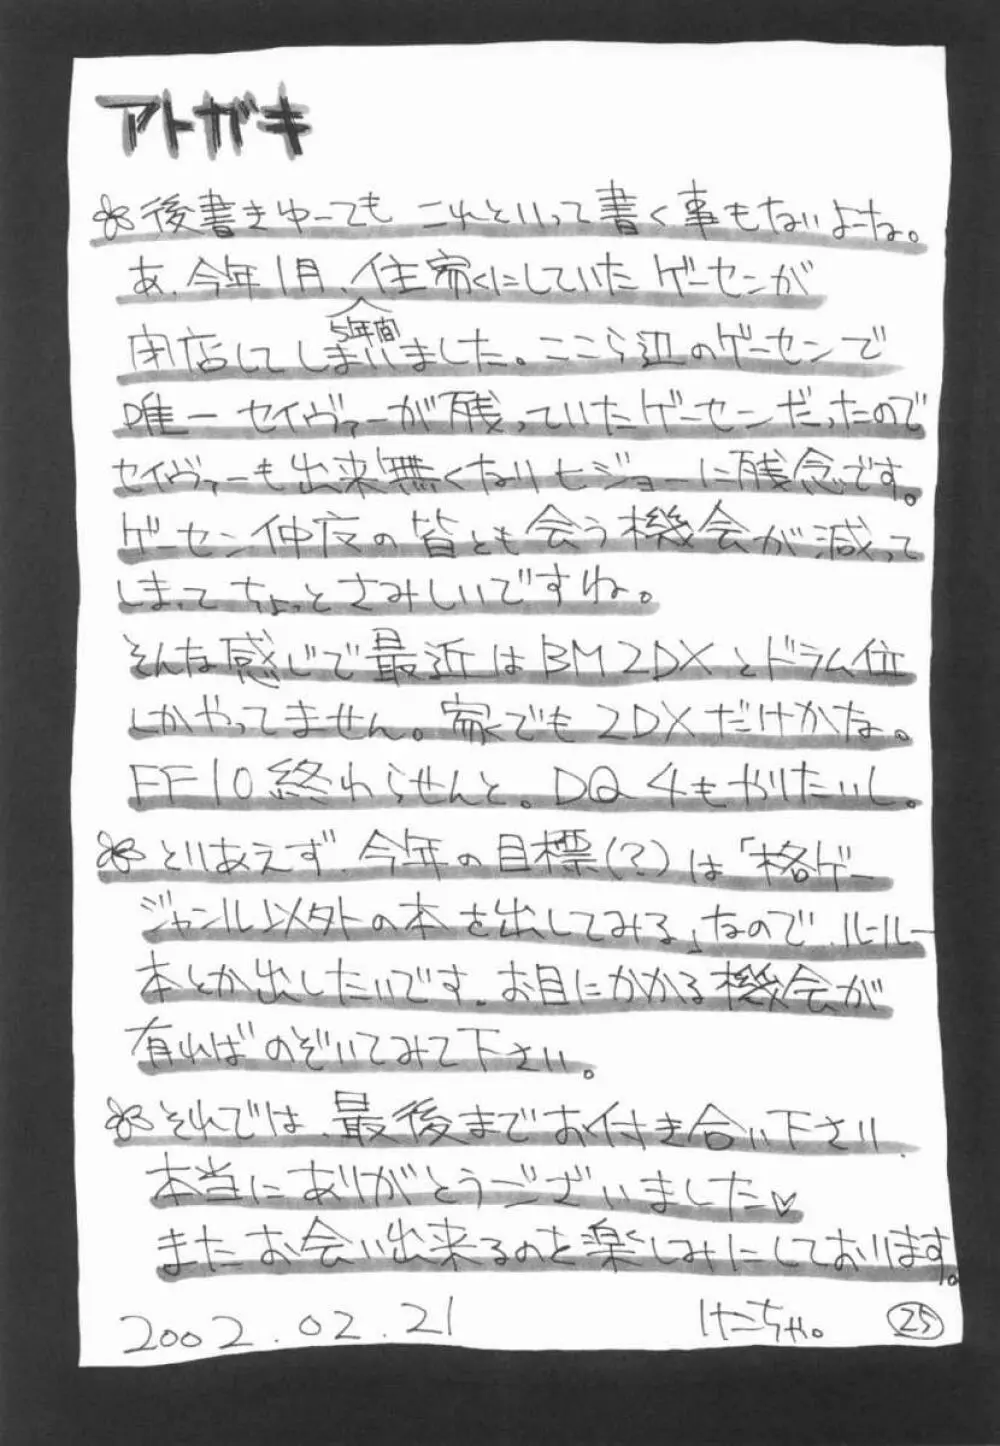 アトガキ
後書きゆーても これといって書く事もないよーな。
あ、今年1月、住家にしていたゲーセンが
5年間
閉店してしまいました。ここら辺のゲーセンで
唯一セイヴァーが残っていたゲーセンだったので
セイヴァーも出来無くなりヒジョーに残念です。
ゲーセン仲間の皆とも会う機会が減って
しまってちょっとさみしいですね。
そんな感じで最近はBM2DXとドラム位
しかやってません。家でも2DXだけかな。
FF10終わらせんと。DQ4もやりたいし。
とりあえず、今年の目標(?)は「格ゲー
ジャンル以外の本を出してみる」なので、ルールー
本とか出したいです。お目にかかる機会が
有ればのぞいてみて下さい。
それでは、最後までお付き合い下さい
本当にありがとうございました♡
またお会い出来るのを楽しみにしております。
2002.02.21
けこちゃ。
25